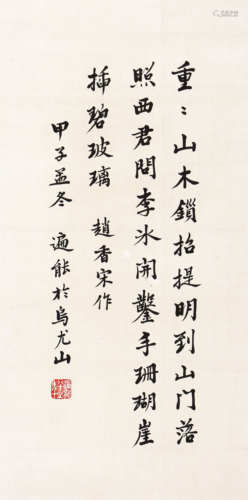 重〻山木鎖招提明到山门落
照西君問李冰開鑿手珊瑚崖
插碧玻璃 趙香宋作
甲子孟冬 遍能於烏尤山